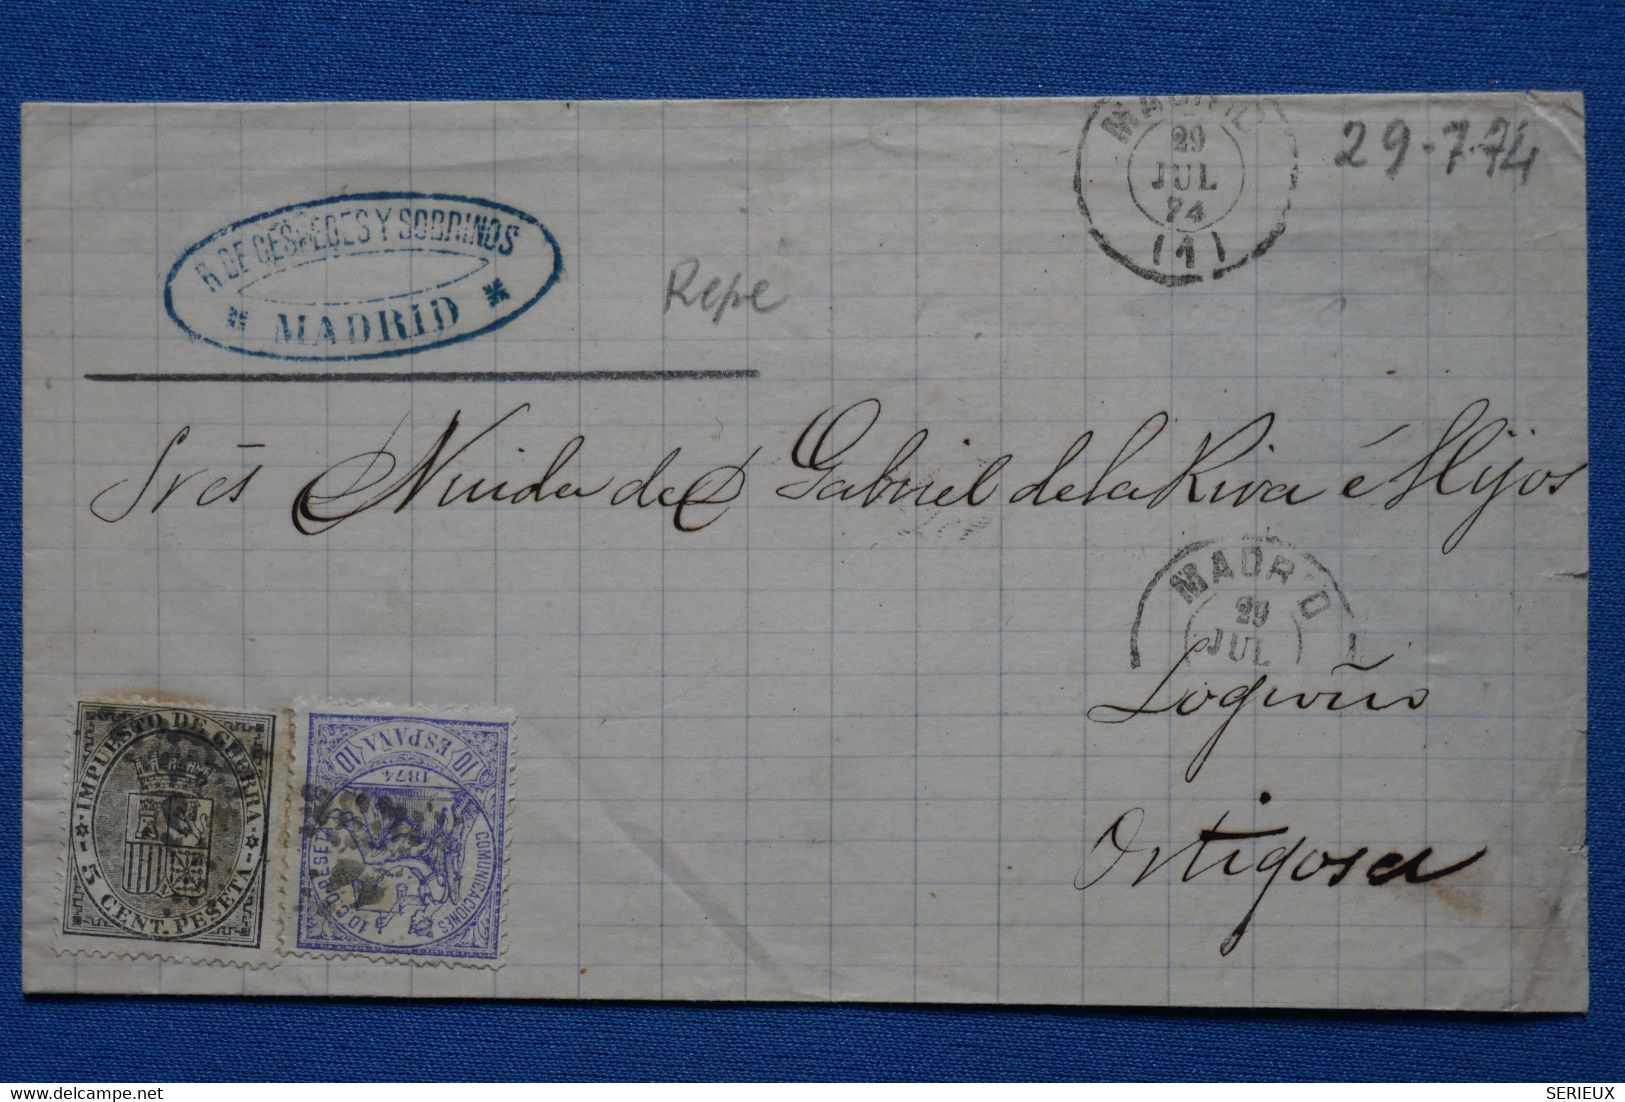 MADRID
29
JUL
74
(1)
29-7-74
R. DE CESPEDES Y SOBRINOS
MADRID
Repe
Sres Viuda de D Gabriel de la Riva é Hijos
MADRID
29
JUL
Logroño
Ortigosa
IMPUESTO DE GUERRA
5 CENT. PESETA
10 ESPAÑA 10
1874
COMUNICACIONES
10 C. DE PESETA
SERIEUX